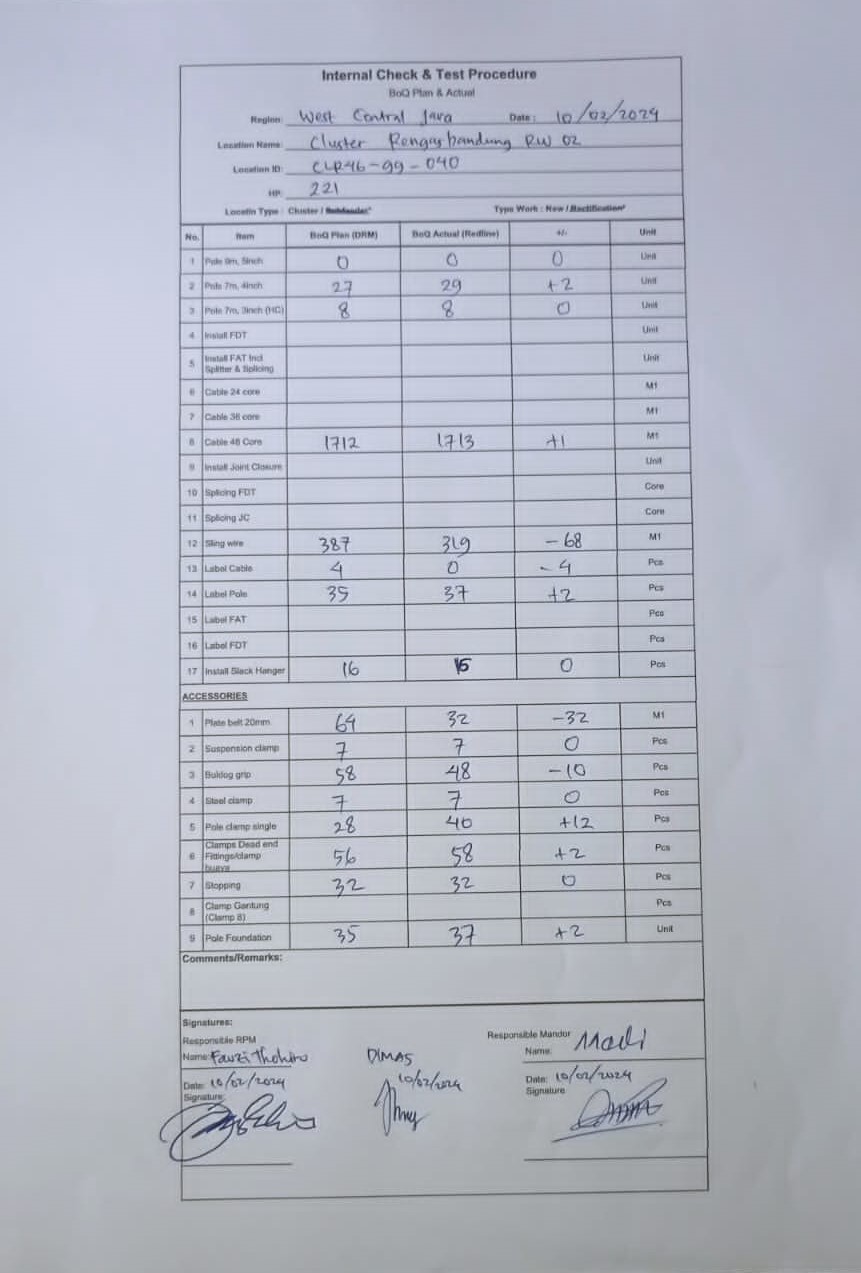 Internal Check & Test Procedure
BoQ Plan & Actual
Region: West Central Java Date: 10/02/2024
Location Name: Cluster Rengasbandung RW 02
Location ID: CLR46-99-040
HP: 221
Locatin Type : Cluster / Subfeeder* Type Work : New / Rectification*
No. Item BoQ Plan (DRM) BoQ Actual (Redline) +/- Unit
1 Pole 9m, 5inch 0 0 0 Unit
2 Pole 7m, 4inch 27 29 +2 Unit
3 Pole 7m, 3inch (HC) 8 8 0 Unit
4 Install FDT Unit
5 Install FAT Incl Splitter & Splicing Unit
6 Cable 24 core M1
7 Cable 36 core M1
8 Cable 48 Core 1712 1713 +1 M1
9 Install Joint Closure Unit
10 Splicing FDT Core
11 Splicing JC Core
12 Sling wire 387 319 -68 M1
13 Label Cable 4 0 -4 Pcs
14 Label Pole 35 37 +2 Pcs
15 Label FAT Pcs
16 Label FDT Pcs
17 Install Slack Hanger 16 0 Pcs
ACCESSORIES
1 Plate belt 20mm 64 32 -32 M1
2 Suspension clamp 7 7 0 Pcs
3 Buldog grip 58 48 -10 Pcs
4 Steel clamp 7 7 0 Pcs
5 Pole clamp single 28 40 +12 Pcs
6 Clamps Dead end Fittings/clamp buaya 56 58 +2 Pcs
7 Stopping 32 32 0 Pcs
8 Clamp Gantung (Clamp 8) Pcs
9 Pole Foundation 35 37 +2 Unit
Comments/Remarks:
Signatures:
Responsible RPM Responsible Mandor
Name: Fauzi Thohiro DIMAS Name: Madi
Date: 10/02/2024 10/02/2024 Date: 10/02/2024
Signature: Signature